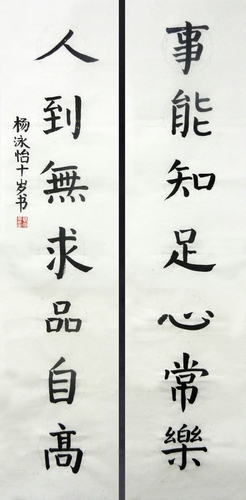 事能知足心常樂
人到無求品自高
杨泳怡十岁书